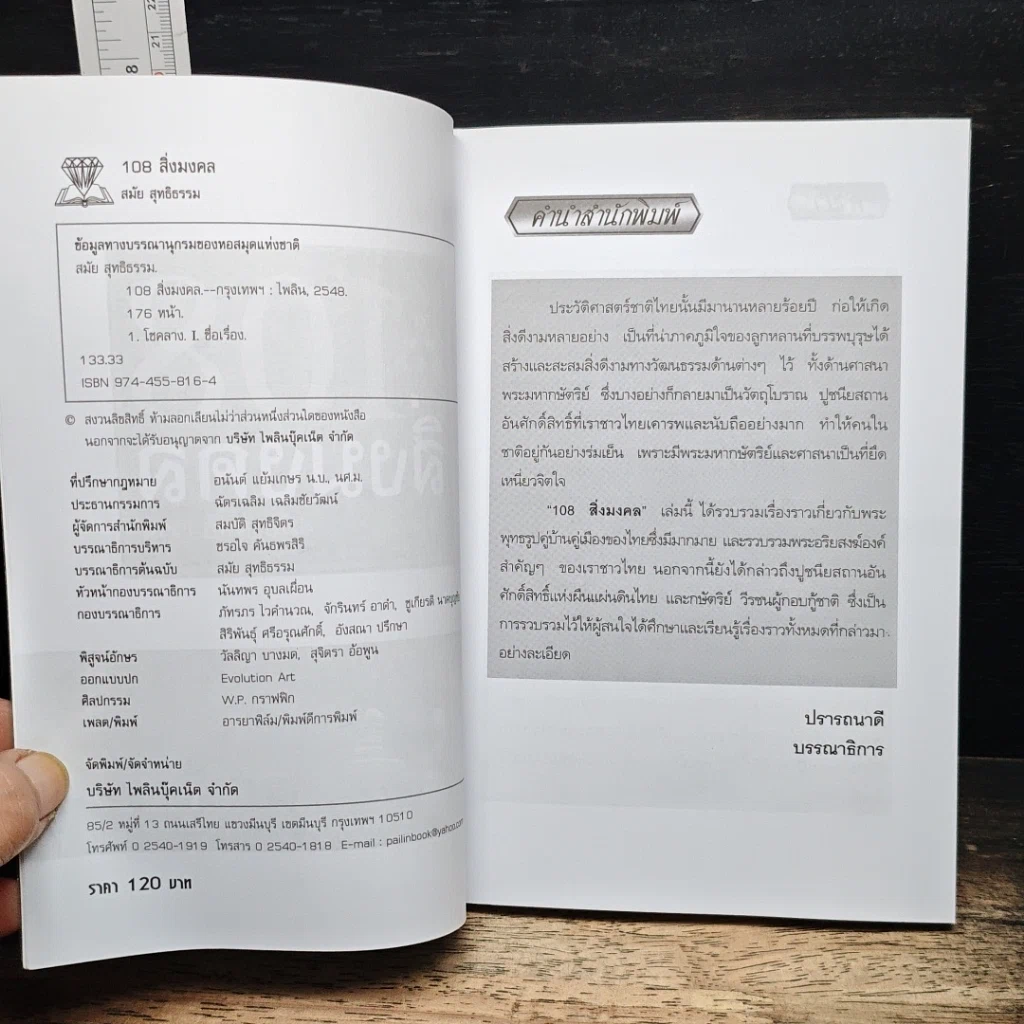 108 สิ่งมงคล
สมัย สุทธิธรรม
ข้อมูลทางบรรณานุกรมของหอสมุดแห่งชาติ
สมัย สุทธิธรรม.
108 สิ่งมงคล.--กรุงเทพฯ : ไพลิน, 2548.
176 หน้า.
1. โชคลาง. I. ชื่อเรื่อง.
133.33
ISBN 974-455-816-4
© สงวนลิขสิทธิ์ ห้ามลอกเลียนไม่ว่าส่วนหนึ่งส่วนใดของหนังสือ
นอกจากจะได้รับอนุญาตจาก บริษัท ไพลินบุ๊คเน็ต จำกัด
ที่ปรึกษากฎหมาย อนันต์ แย้มเกษร น.บ., นศ.ม.
ประธานกรรมการ ฉัตรเฉลิม เฉลิมชัยวัฒน์
ผู้จัดการสำนักพิมพ์ สมบัติ สุทธิจิตร
บรรณาธิการบริหาร ชรอใจ คันธพรสิริ
บรรณาธิการต้นฉบับ สมัย สุทธิธรรม
หัวหน้ากองบรรณาธิการ นันทพร อุบลเผื่อน
กองบรรณาธิการ ภัทรภร ไวคำนวณ, จักรินทร์ อาดำ, ชูเกียรติ
สิริพันธุ์ ศรีอรุณศักดิ์, อังสณา ปรึกษา
พิสูจน์อักษร วัลลิญา บางมด, สุจิตรา อ้อพูน
ออกแบบปก Evolution Art
ศิลปกรรม W.P. กราฟฟิก
เพลต/พิมพ์ อารยาฟิล์ม/พิมพ์ดีการพิมพ์
จัดพิมพ์/จัดจำหน่าย
บริษัท ไพลินบุ๊คเน็ต จำกัด
85/2 หมู่ที่ 13 ถนนเสรีไทย แขวงมีนบุรี เขตมีนบุรี กรุงเทพฯ 10510
โทรศัพท์ 0 2540-1919 โทรสาร 0 2540-1818 E-mail : pailinbook@yahoo.com
ราคา 120 บาท
คำนำสำนักพิมพ์
ประวัติศาสตร์ชาติไทยนั้นมีมานานหลายร้อยปี ก่อให้เกิด
สิ่งดีงามหลายอย่าง เป็นที่น่าภาคภูมิใจของลูกหลานที่บรรพบุรุษได้
สร้างและสะสมสิ่งดีงามทางวัฒนธรรมด้านต่างๆ ไว้ ทั้งด้านศาสนา
พระมหากษัตริย์ ซึ่งบางอย่างก็กลายมาเป็นวัตถุโบราณ ปูชนียสถาน
อันศักดิ์สิทธิ์ที่เราชาวไทยเคารพและนับถืออย่างมาก ทำให้คนใน
ชาติอยู่กันอย่างร่มเย็น เพราะมีพระมหากษัตริย์และศาสนาเป็นที่ยึด
เหนี่ยวจิตใจ
"108 สิ่งมงคล" เล่มนี้ ได้รวบรวมเรื่องราวเกี่ยวกับพระ
พุทธรูปคู่บ้านคู่เมืองของไทยซึ่งมีมากมาย และรวบรวมพระอริยสงฆ์องค์
สำคัญๆ ของเราชาวไทย นอกจากนี้ยังได้กล่าวถึงปูชนียสถานอัน
ศักดิ์สิทธิ์แห่งผืนแผ่นดินไทย และกษัตริย์ วีรชนผู้กอบกู้ชาติ ซึ่งเป็น
การรวบรวมไว้ให้ผู้สนใจได้ศึกษาและเรียนรู้เรื่องราวทั้งหมดที่กล่าวมา
อย่างละเอียด
ปรารถนาดี
บรรณาธิการ
8
21
22